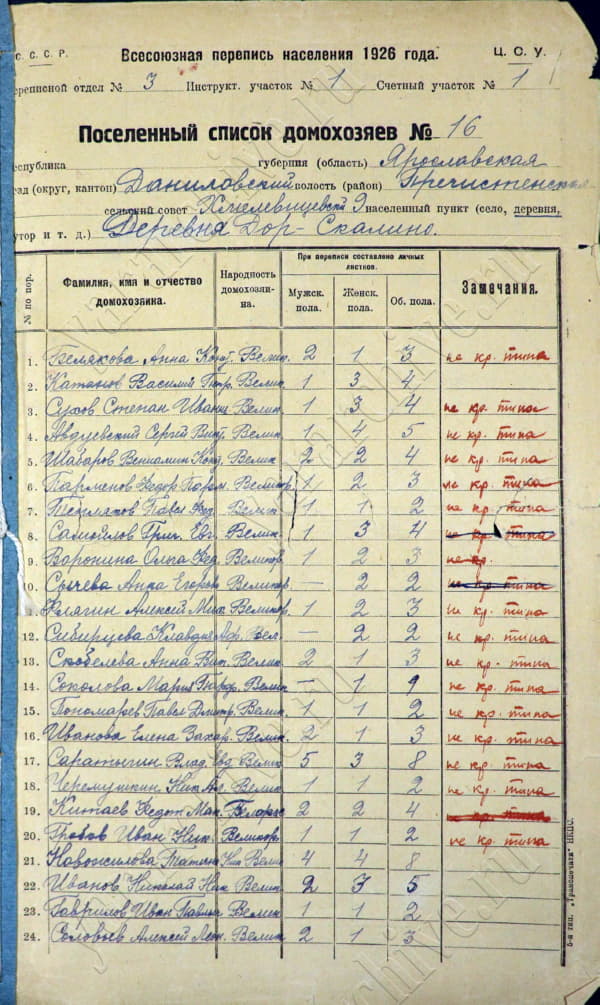 С. С. С. Р. Всесоюзная перепись населения 1926 года. Ц. О. У.
ереписной отдел № 3 Инструкт. участок № 1 Счетный участок № 1
Поселенный список домохозяев № 16
еспублика губерния (область) Ярославская
зд (округ, кантон) Даниловский волость (район) Пречистенская
сельский совет населенный пункт (село, деревня,
утор и т. д.) Деревня Дор-Скалино.
№ по пор. Фамилия, имя и отчество домохозяина. Народность домохозяина. При переписи составлено личных листков. Замечания.
Мужск. пола. Женск. пола. Об. пола.
1. Белякова Анна Велик. 2 1 3 не кр. типа
2. Катанов Василий Петр. Велик. 1 3 4
3. Сухов Степан Иван. Велик. 1 3 4 не кр. типа
4. Авдуевский Сергей Викт. Велик. 1 4 5 не кр. типа
5. Шабаров Вениамин Конд. Велик. 2 2 4 не кр. типа
6. Парменов Федор Парм. Великор. 1 2 3 не кр. типа
7. Павел Фед. Велик. 1 1 2 не кр. типа
8. Самойлов Григ. Евг. Велик. 1 3 4 не кр. типа
9. Воронина Ольга Фед. Великор. 1 2 3 не кр.
10. Сычева Анна Егоров. Великор. — 2 2 не кр. типа
11. Алексей Мих. Великор. 1 2 3 не кр. типа
12. Сибирцева Клавдия Вел. — 2 2 не кр. типа
13. Скобелева Анна Вик. Велик. 2 1 3 не кр. типа
14. Соколова Мария Велик — 1 не кр. типа
15. Пономарев Павел Дмитр. Велик. 1 1 2 не кр. типа
16. Иванова Елена Захар. Велик. 2 1 3 не кр. типа
17. Саратыгин Влад. Велик 5 3 8 не кр. типа
18. Черемушкин Ник. Ал. Велик 1 1 2 не кр. типа
19. Китаев Федот Мак. 2 2 4 не кр. типа
20. Грабов Иван Ник. Великор. 1 1 2 не кр. типа
21. Новожилова Татьяна Ник. Велик 4 4 8
22. Иванов Николай Ник. Велик. 2 3 5
23. Гаврилов Иван Павлов. Велик 1 1 2
24. Соловьев Алексей Велик. 2 1 3
5-я тип. „Транспечати“ НКПС.